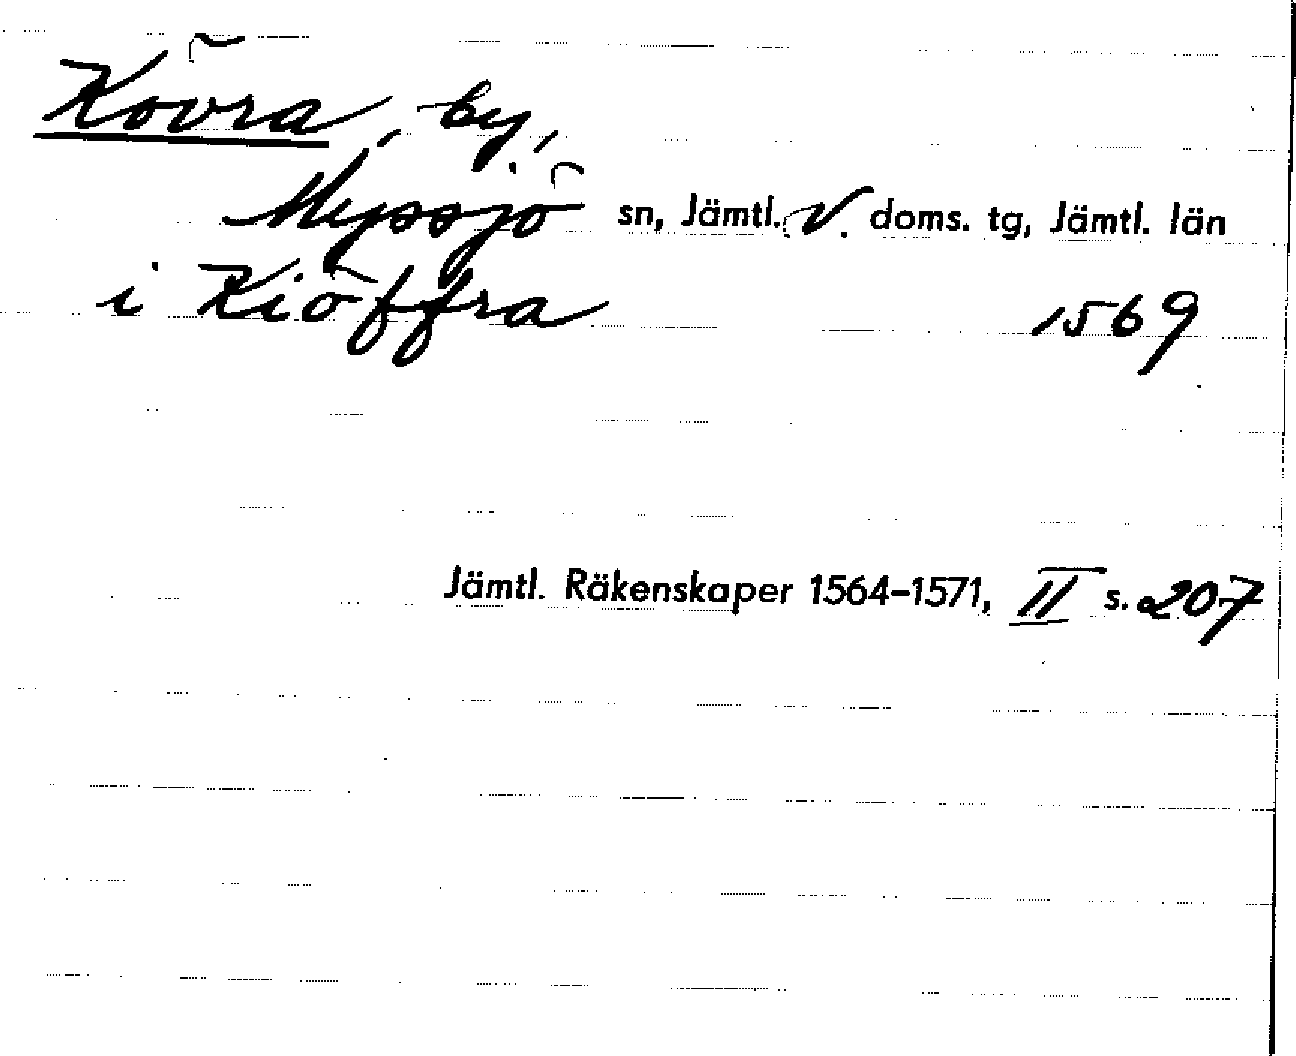 Kövra, by,
Myssjö sn, Jämtl. V. doms. tg, Jämtl. län
i Kiöffra 1569
Jämtl. Räkenskaper 1564-1571, II s. 207